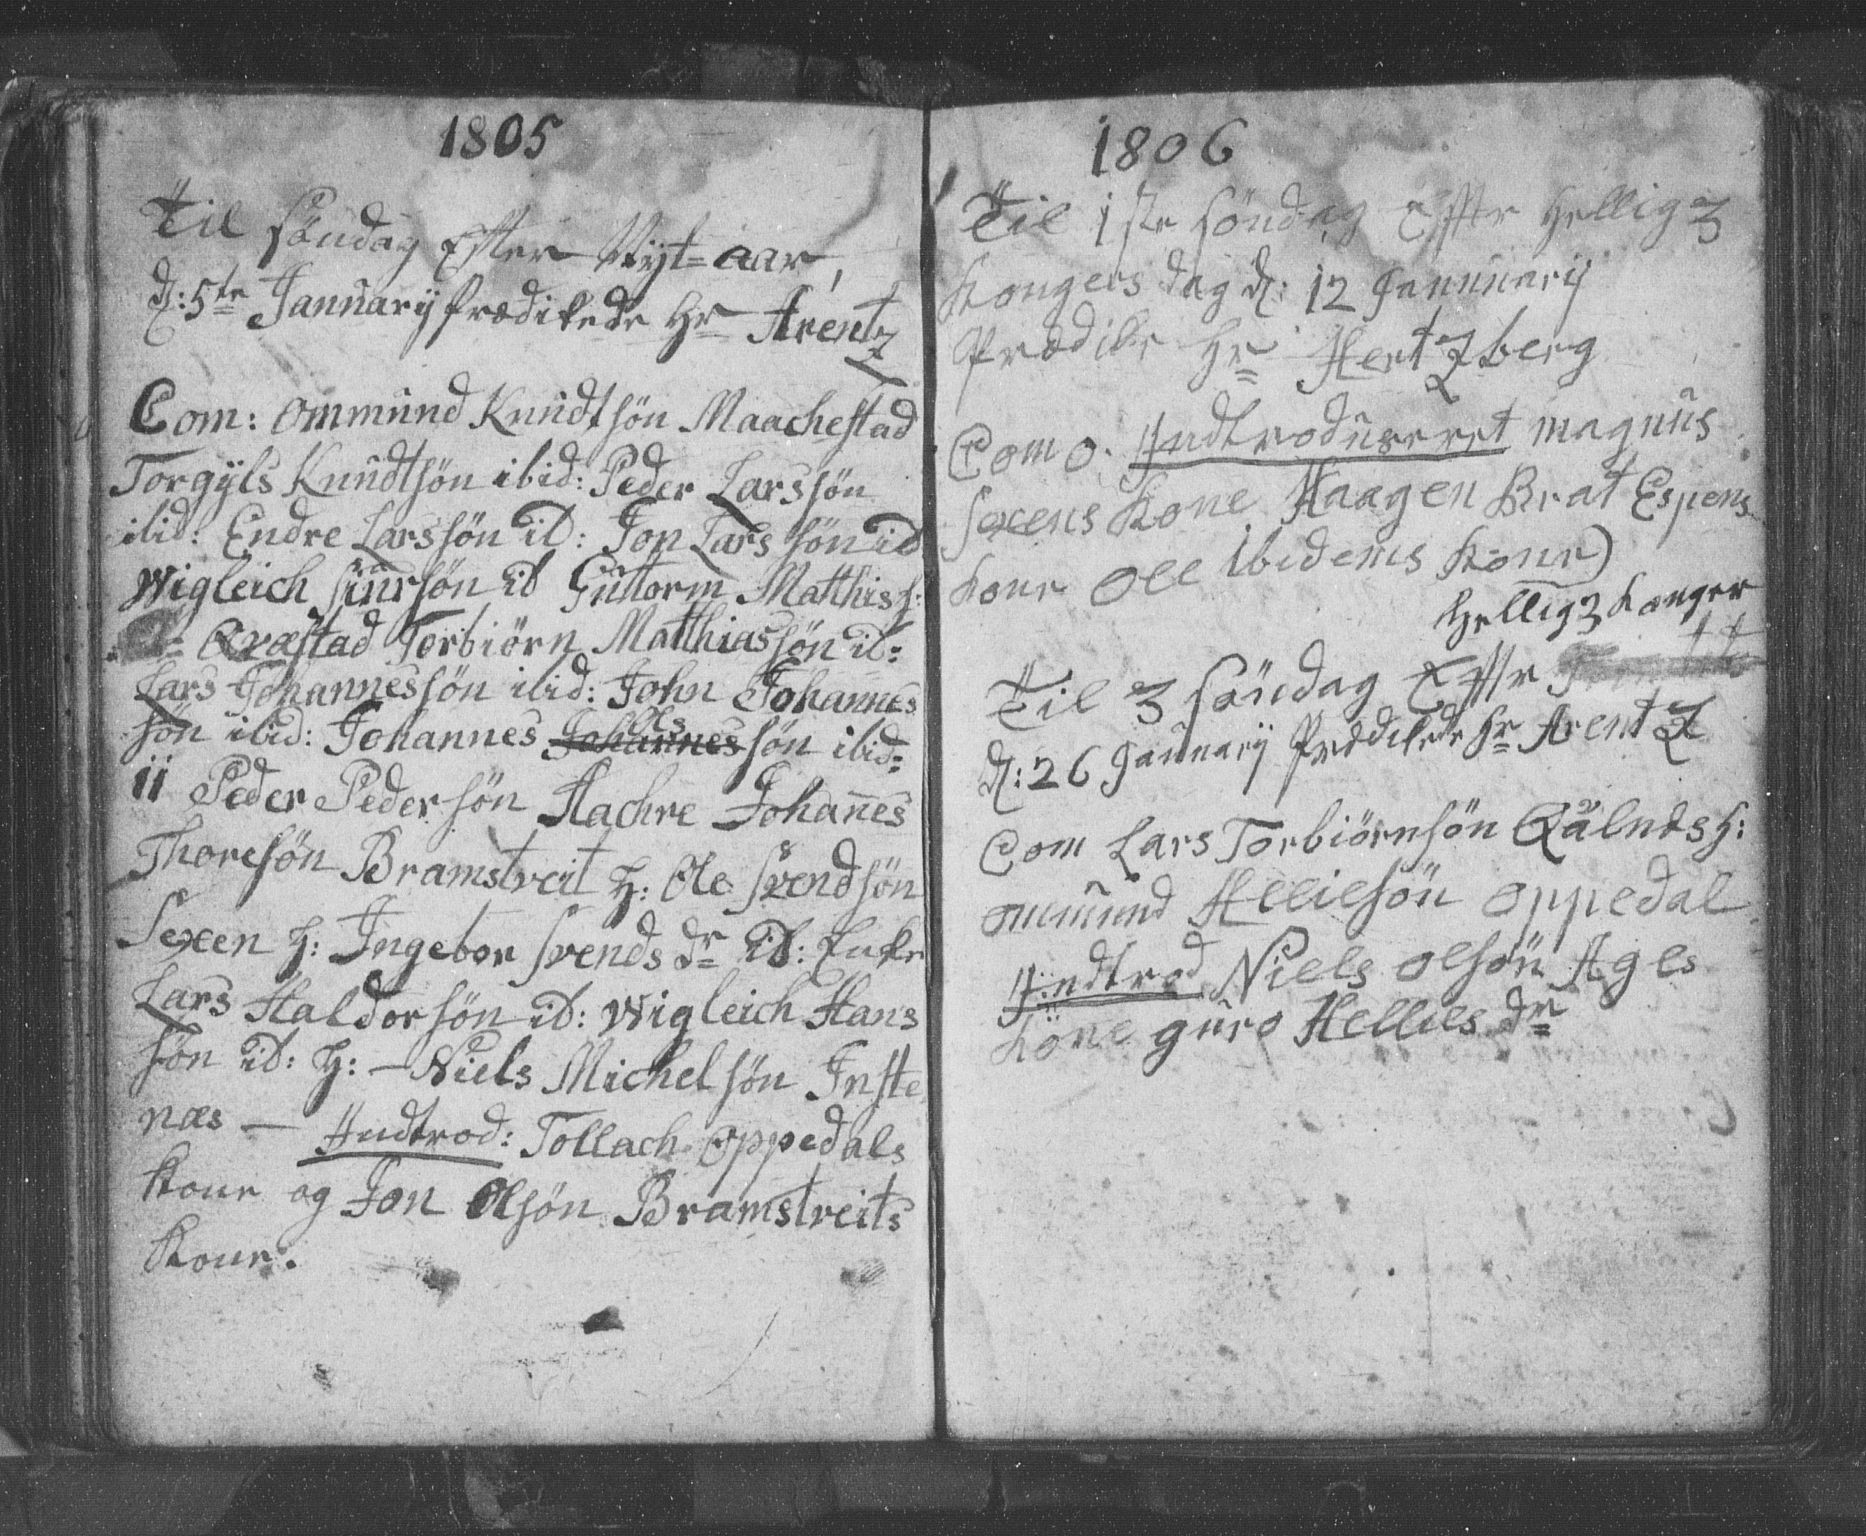 1805
Til söndag Efter Nyt=aar,
d: 5te Januarij prædikede Hr Arentz
Com: Ommund Knudtsön Maachestad
Torgyls Knudtsön ibid: Peder Larssön
ibid: Endre Larssön id: Jon Larssön id
Wigleich siursön id Guttorm Matthis s:
Qvæstad Torbiörn Matthiassön id:
Lars Johannessön ibid: John Johannes
sön ibid: Johannes Johannessön ibid:
11 Peder Pedersön Aachre Johannes
Thoresön Bramstreit H: Ole Svendsön
Sexen H: Ingebor Svends dr id: Enke
Lars Haldorsön id: Wigleich Hans
sön id: H: — Niels Michelsön Inste
næs — Indtrod: Tollach Oppedals
Kone og Jon Olsön Bramstreits
Kone.
1806
Til 1ste söndag Efftr Hellig 3
Kongers dag d: 12 Januuarij
Prædike Hr Hertzberg
Com 0. Indtroduseret magnus
Sexens Kone Haagen Brat Espens
Kone Ole Ibidems Kone)
Hellig 3 Konger
Til 3 söndag Efftr
d: 26 Januarij Prædikede Hr Arentz
Com Lars Torbiörnsön H:
ommund Helliesön Oppedal
Indtrod Niels Olsön Ages
Kone guro Hellies dr